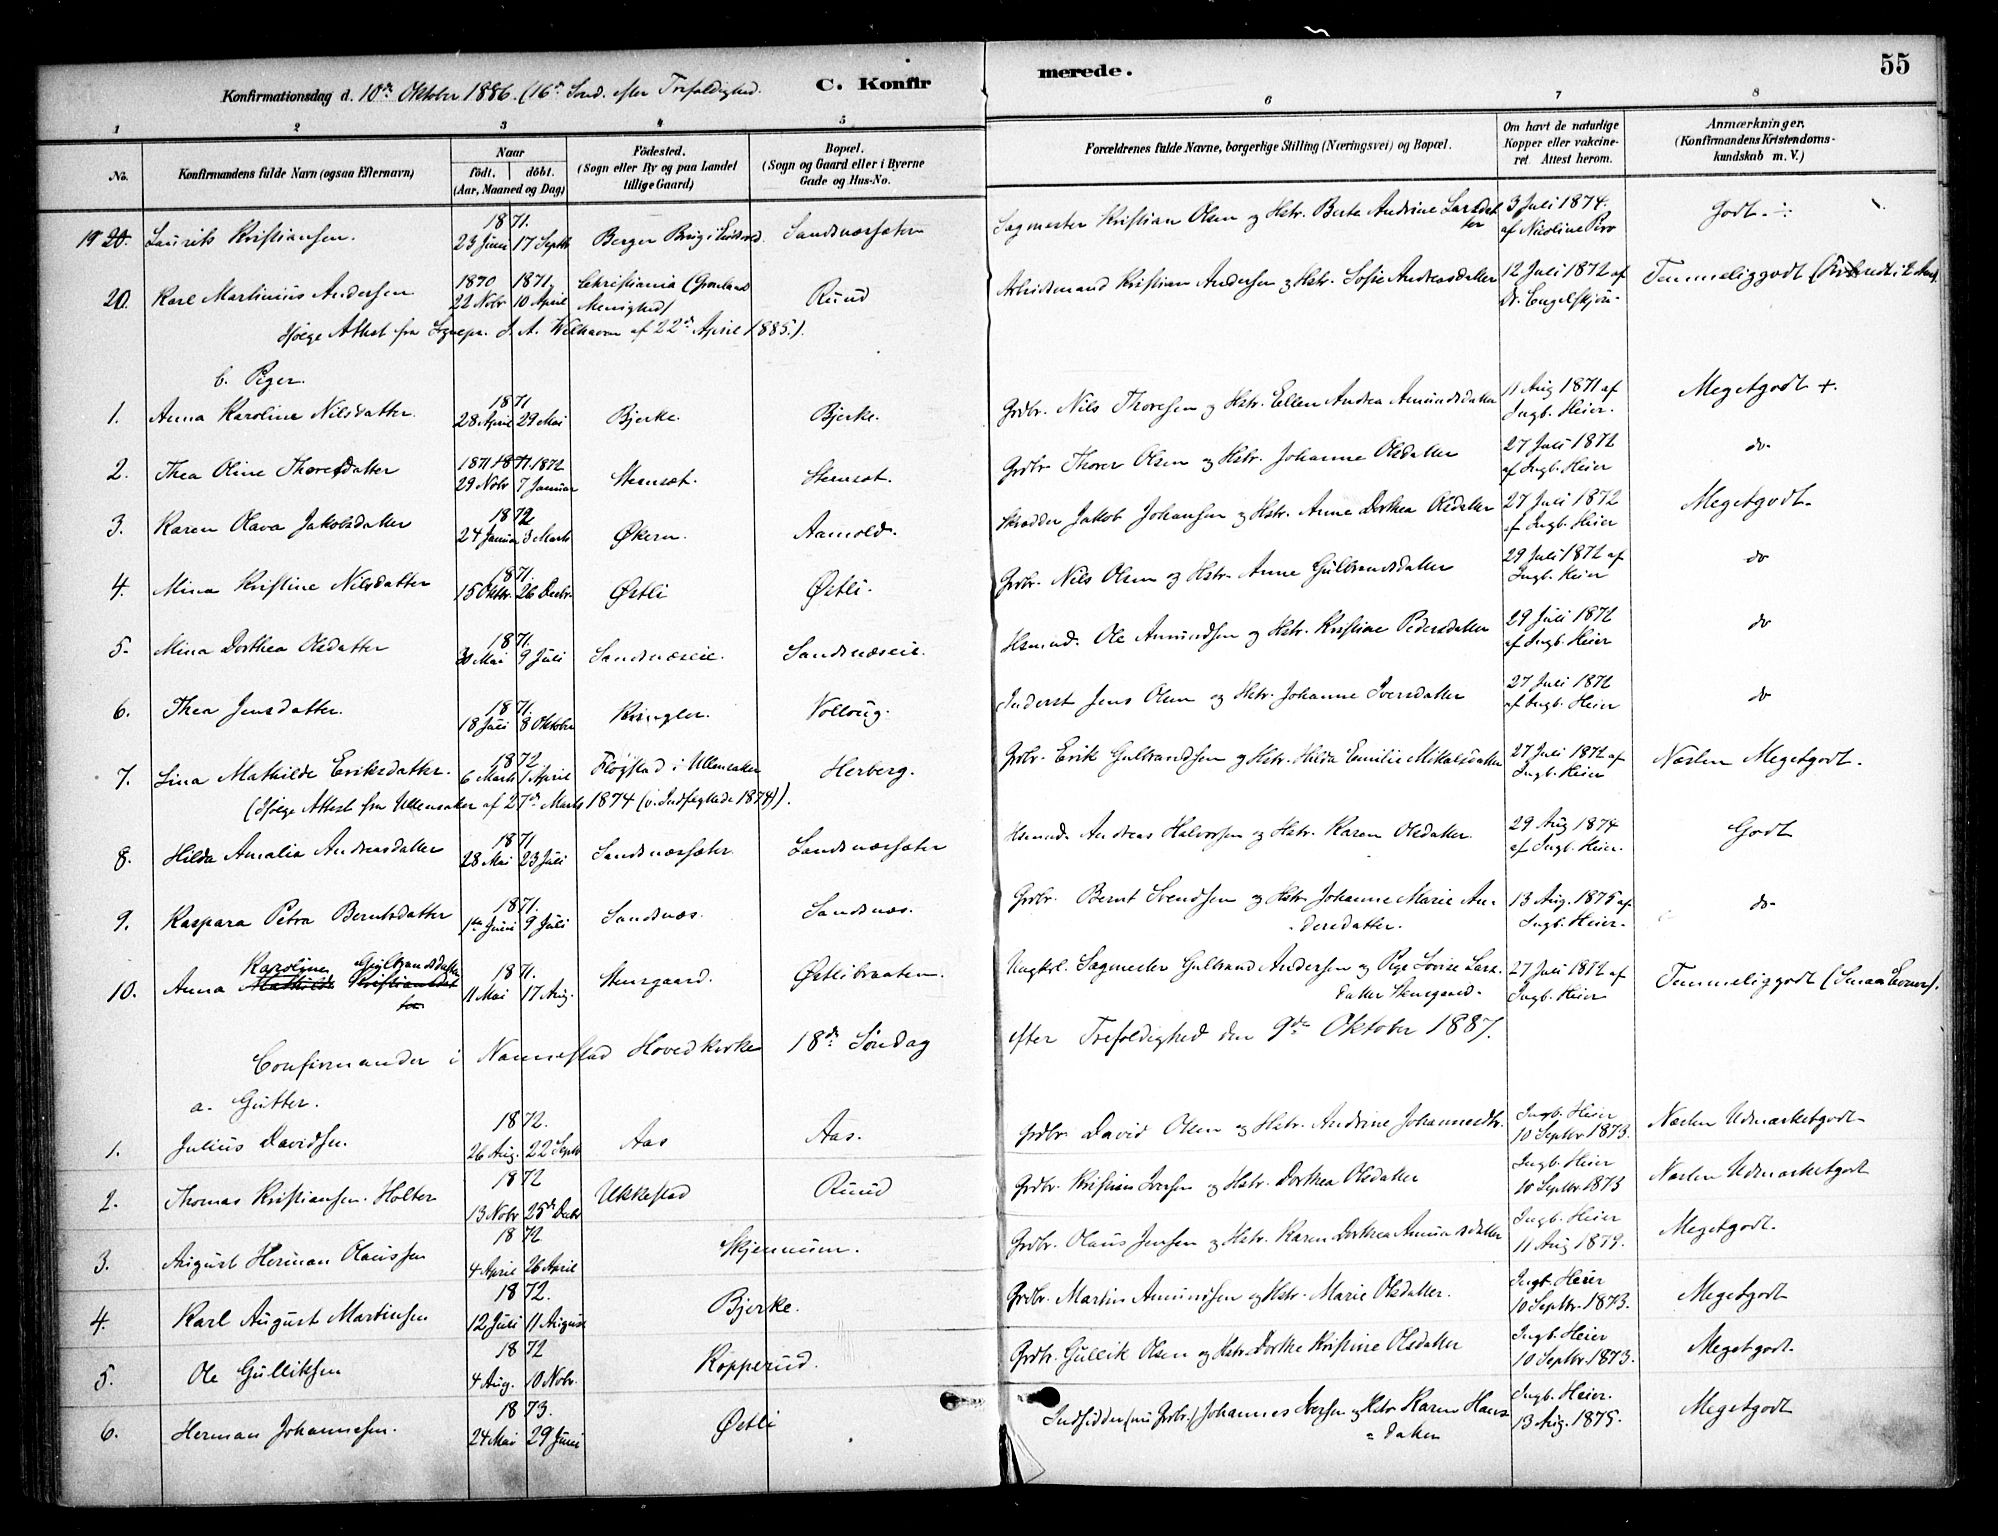 55
Konfirmationsdag d. 10de Oktober 1886. (16de Sønd. efter Trefoldighed.
C. Konfirmerede.
1 2 3 4 5 6 7 8
No. Konfirmandens fulde Navn (ogsaa Efternavn) Naar født. døbt. (Aar, Maaned og Dag) Fødested. (Sogn eller By og paa Landet tillige Gaard) Bopæl. (Sogn og Gaard eller i Byerne Gade og Hus-No. Forældrenes fulde Navne, borgerlige Stilling (Næringsvei) og Bopæl. Om havt de naturlige Kopper eller vakcineret. Attest herom. Anmærkninger. (Konfirmandens Kristendomskundskab m. V.)
19 Laurits Kristiansen. 1871. 23 Juni 17 Septbr Berger Sandsnæssæter Sagmester Kristian Olsen og Hstr. Berte Andrine Larsdatter 3 Juli 1874. af Nicoline Godt
20. Karl Martinius Andersen 1870 22 Novbr 1871 10 April Christiania (Grønland Menighed) Ruud Arbeidsmand Kristian Andersen og Hstr. Sofie Andreasdatter 12 Juli 1872 af Dr. Engelskjøn Temmeliggodt
Ifølge Attest fra Sognepr. J. A. Welhaven af 22de April 1885.).
b. Piger.
1. Anna Karoline Nilsdatter. 1871 28 April 29 Mai Bjerke. Bjerke. Grdbr. Nils Thoresen og Hstr. Ellen Andrea Amundsdatter 11 Aug 1871 af Ingb. Heier. Megetgodt +.
2. Thea Oline Thoresdatter 1871 1871. 1872 29 Novbr 7 Januar Stensæt. Stensæt. Grdbr. Thorer Olsen og Hstr. Johanne Olsdatter 27 Juli 1872 af Ingb. Heier do
3. Karen Olava Jakobsdatter 1872 24 Januar 3 Marts Økern. Aamold. Skrædder Jakob Johansen og Hstr. Anne Dorthea Olsdatter 27 Juli 1872 af Ingb. Heier Megetgodt.
4. Mina Kristine Nilsdatter 1871. 15 Oktbr. 26 Decbr. Østli Østli. Grdbr. Nils Olsen og Hstr. Anne Gulbrandsdatter 29 Juli 1872 af Ingb. Heier do
5. Mina Dorthea Olsdatter 1871. 30 Mai 9 Juli Sandsnæseie. Sandsnæseie. Hsmnd. Ole Amundsen og Hstr. Kristine Pedersdatter 29 Juli 1872 af Ingb. Heier do
6. Thea Jensdatter. 1871. 18 Juli 8 Oktober Kringler. Volloug. Inderst Jens Olsen og Hstr. Johanne Iversdatter 27 Juli 1872 af Ingb. Heier do
7. Lina Mathilde Eriksdatter. 1872 6 Marts April Fløgstad i Ullensaker Herberg. Grdbr. Erik Gulbrandsen og Hstr. Hilda Emilie Mikalsdatter 27 Juli 1872 af Ingb. Heier Næsten Megetgodt.
(Ifølge Attest fra Ullensaker af 27de Marts 1874 (v. Indflyttede 1874)).
8. Hilda Amalia Andreasdatter 1871 28 Mai 23 Juli Sandsnæssæter. Sandsnæssæter Hsmnd. Andreas Halvorsen og Hstr. Karen Olsdatter. 29 Aug 1874 af Ingb. Heier. Godt
9. Kaspara Petra Berntsdatter 1871. 1ste Juni 9 Juli Sandsnæs. Sandsnæs. Grdbr. Bernt Svendsen og Hstr. Johanne Marie Andersdatter. 13 Aug. 1875 af Ingb. Heier. do
10. Anna Karoline Gulbrandsdatter Mathilde Kristiansdatter 1871. 11 Mai 17 Aug. Stensgaard. Østlibraaten. Ungkrl. Sagmester Gulbrand Andersen og Pige Lovise Larsdatter Stensgaard. 27 Juli 1872 af Ingb. Heier Temmeliggodt
Confirmander i Nannestad Hovedkirke 18de Søndag efter Trefoldighed den 9de Oktober 1887.
a. Gutter.
1. Julius Davidsen. 1872. 26 Aug. 22 Septb Aas Aas. Grdbr. David Olsen og Hstr. Andrine Johannesdtr. Ingb. Heier 10 Septbr. 1873. Næsten Udmærketgodt
2. Thomas Kristiansen Holter 1872 13 Novbr 25de Decbr Ukkestad Ruud Grdbr. Kristian Iversen og Hstr. Dorthea Olsdatter Ingb. Heier 10 Septbr. 1873 Næsten Udmærketgodt
3. August Herman Olaussen 1872 4 April 26 April Skjennum. Grdbr. Olaus Jensen og Hstr. Karen Dorthea Amundsdatter Ingb. Heier 11 Aug 1879. Megetgodt.
4. Karl August Martinsen 1872. 12 Juli 11 August Bjerke. Grdbr. Martin Amundsen og Hstr. Marie Olsdatter. Ingb. Heier 10 Septbr. 1873. Megetgodt
5. Ole Gulliksen 1872 4 Aug. 10 Novbr. Kopperud. Grdbr. Gullik Olsen og Hstr. Dorthe Kristine Olsdatter Ingb. Heier 10 Septbr. 1873. Megetgodt.
6. Herman Johannesen. 1873. 24 Mai 29 Juni Østli Indsidder (nu Grdbr.) Johannes Iversen og Hstr. Karen Hansdatter Ingb. Heier. 13 Aug. 1875. Megetgodt